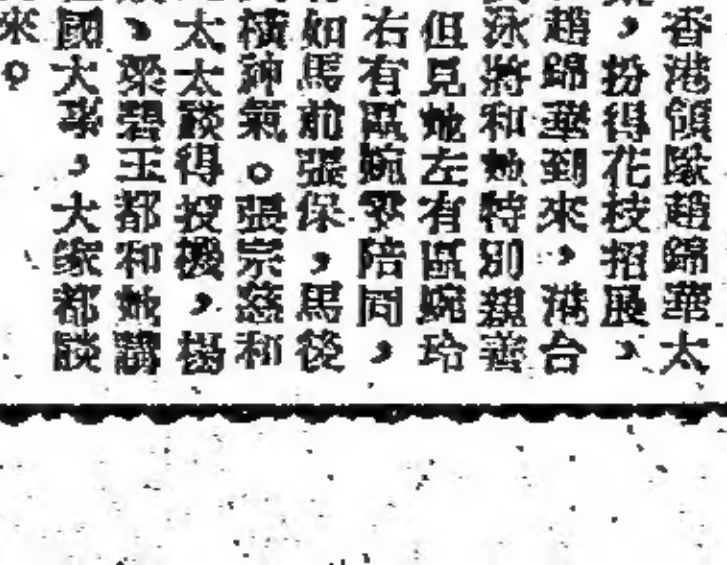 香港領隊趙錦華太
，扮得花枝招展，
趙錦華到來，港合
泳將和她特別親善
但見她左有區婉玲
右有區婉雯陪同，
如馬前張保，馬後
橫神氣。張宗慈和
太太談得投機，楊
、梁碧玉都和她講
國大事，大家都談
來。